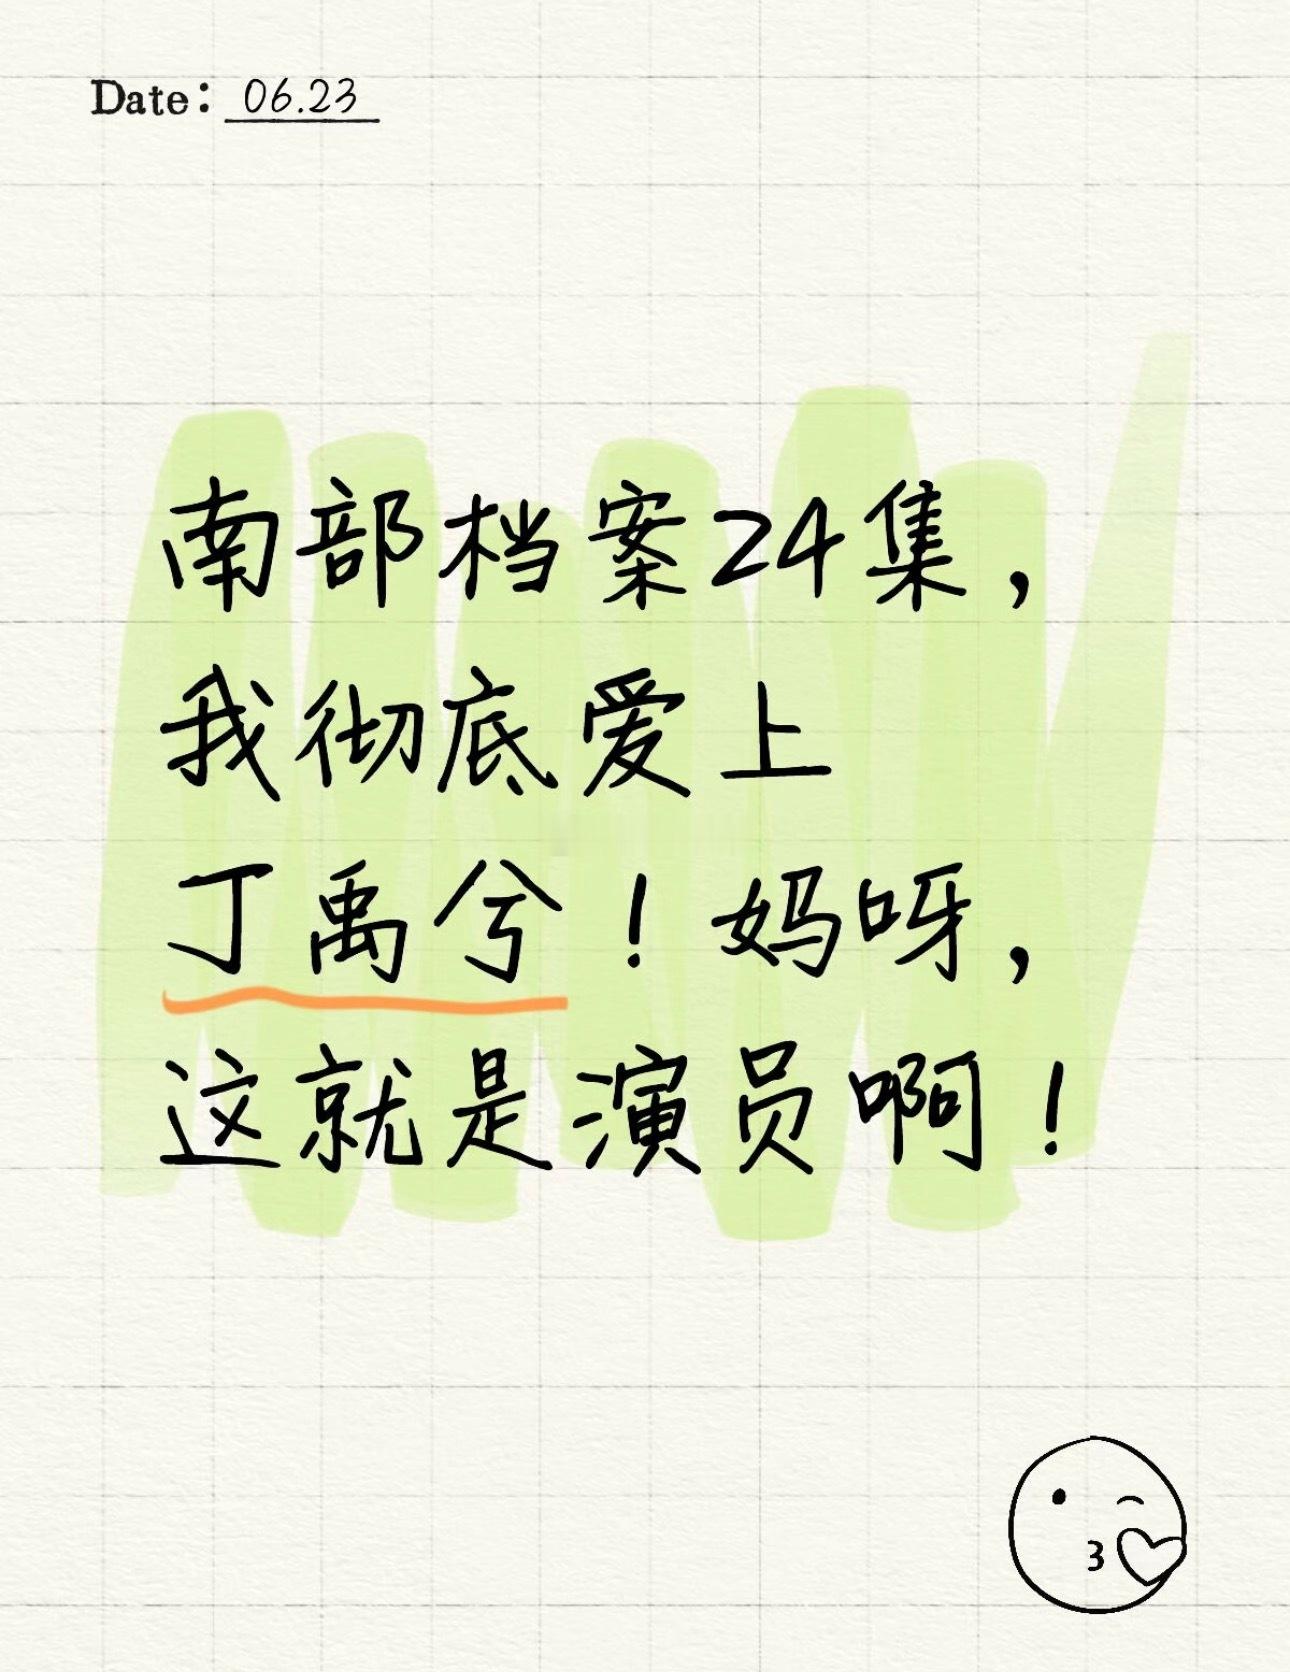 Date: 06.23
南部档案24集，
我彻底爱上
丁禹兮！妈呀，
这就是演员啊！